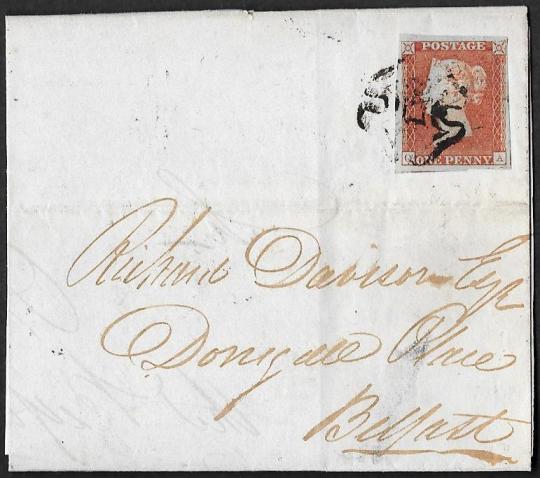 POSTAGE
ONE PENNY
Q A
Richard Davison Esqr
Donegall Place
Belfast